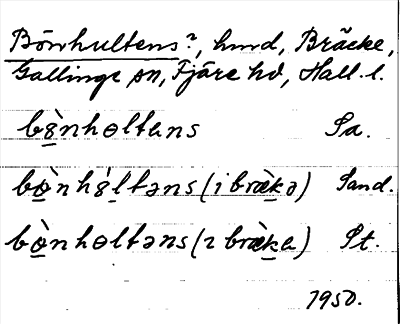 Bönhultens?, hund, Bräcke,
Gällinge sn, Fjäre hd, Hall. l.
bò̲nhɵltens Sa.
bò̲nhɵ́ltəns (i bræ̀kə) Sand.
bò̲nhɵltəns (ɪ bræ̀ka) St.
1950.